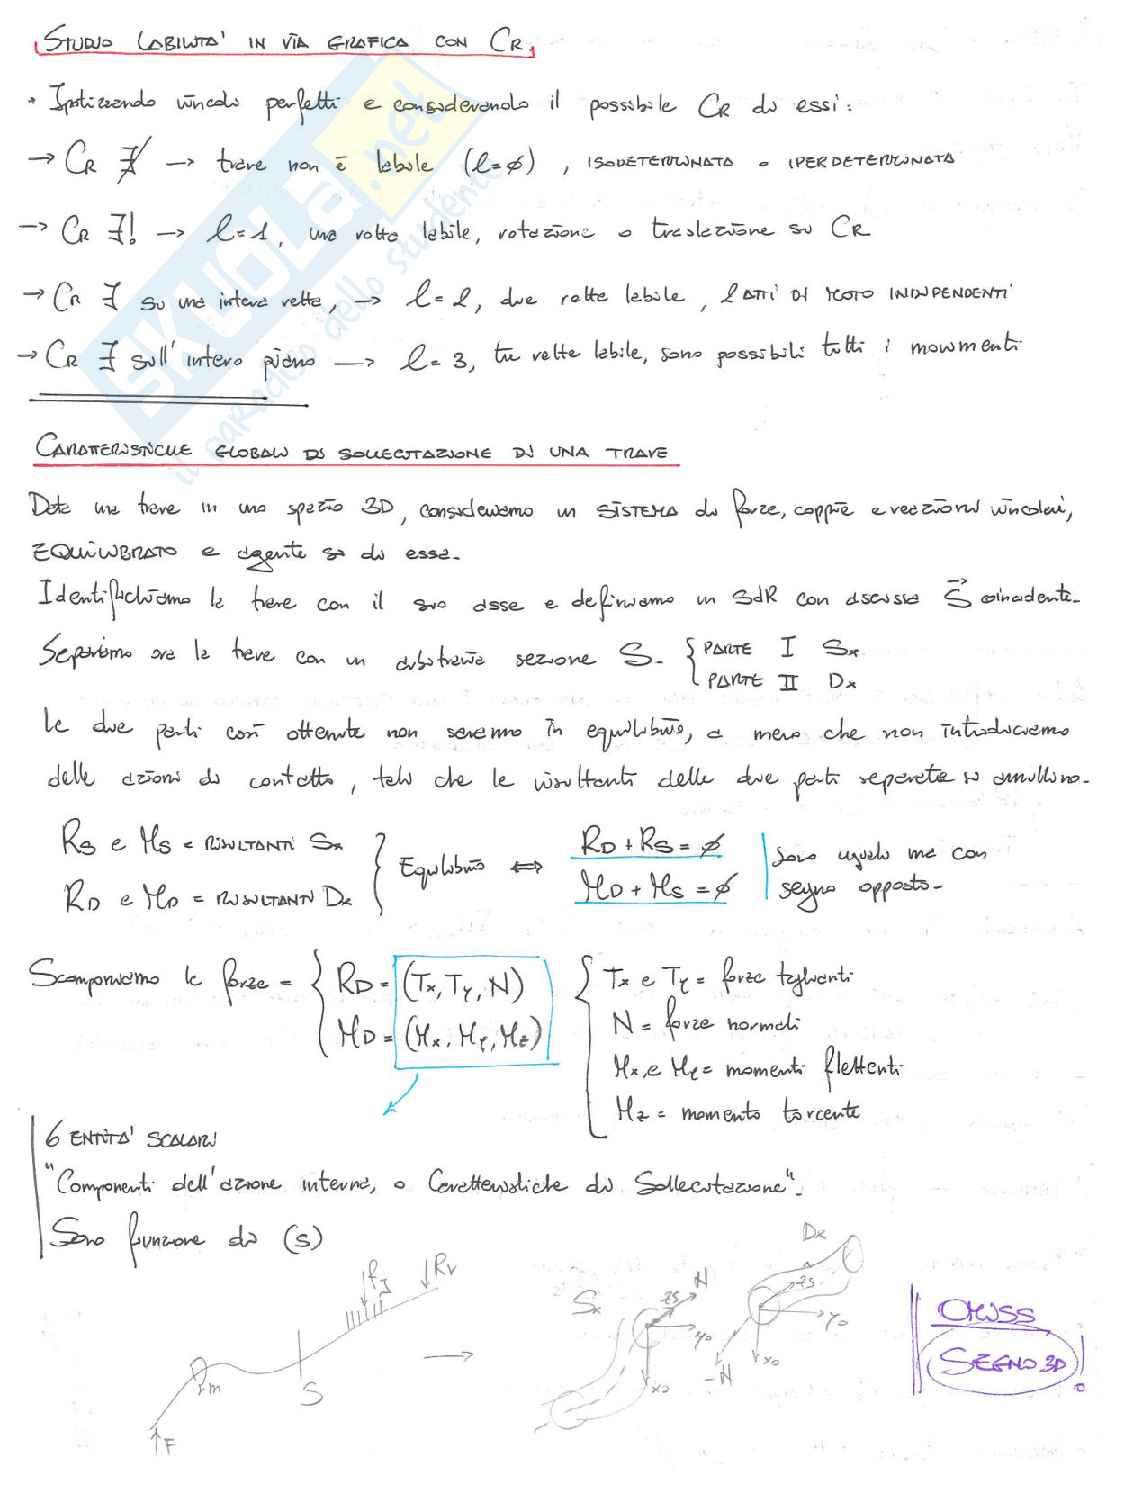 STUDIO LABILITA' IN VIA GRAFICA CON CR
• Ipotizzando vincoli perfetti e considerando il possibile CR di essi:
→ CR ∄ → trave non è labile (l=∅), ISODETERMINATA o IPERDETERMINATA
→ CR ∃! → l=1, una volta labile, rotazione o traslazione su CR
→ CR ∃ su una intera retta, → l=2, due volte labile, 2 ATTI DI MOTO INDIPENDENTI
→ CR ∃ sull'intero piano → l=3, tre volte labile, sono possibili tutti i movimenti
CARATTERISTICHE GLOBALI DI SOLLECITAZIONE DI UNA TRAVE
Data una trave in uno spazio 3D, consideriamo un SISTEMA di forze, coppie e reazioni vincolari,
EQUILIBRATO e agente su di essa.
Identifichiamo la trave con il suo asse e definiamo un SdR con ascissa S coincidente.
Separiamo ora la trave con un arbitraria sezione S. { PARTE I Sx
PARTE II Dx
Le due parti così ottenute non saranno in equilibrio, a meno che non introduciamo
delle azioni di contatto, tali che le risultanti delle due parti separate si annullino.
RS e MS = RISULTANTI Sx
RD e MD = RISULTANTI Dx
} Equilibrio ⟺ RD + RS = ∅
MD + MS = ∅
Sono uguali ma con
segno opposto.
Scomponiamo le forze = { RD = (Tx, Ty, N)
MD = (Mx, My, Mz)
{ Tx e Ty = forze taglianti
N = forze normali
Mx e My = momenti flettenti
Mz = momento torcente
6 ENTITA' SCALARI
"Componenti dell'azione interna, o Caratteristiche di Sollecitazione".
Sono funzione di (s)
F
m
S
RV
Sx
N
zs
yo
xo
Dx
zs
yo
xo
-N
CHISS
SEGNO 3D!
SKUOLA.net
il paradiso dello studente